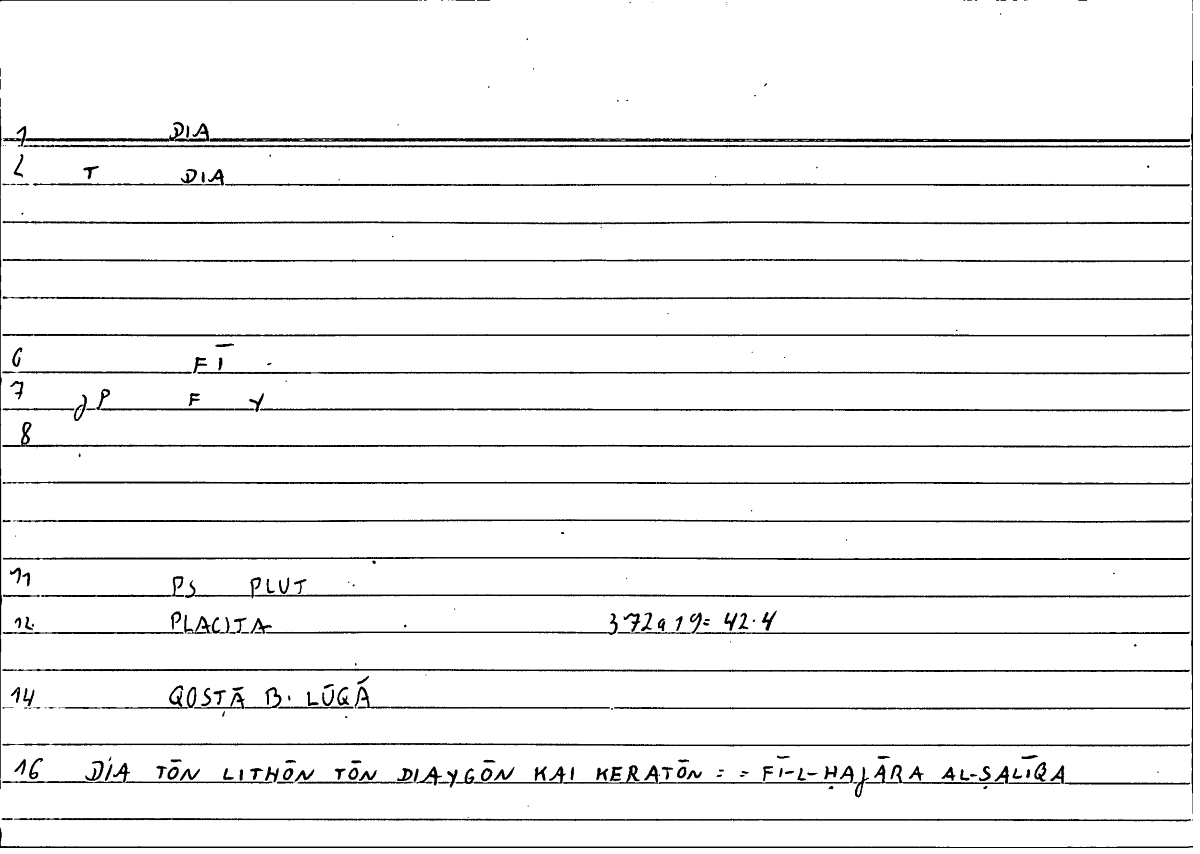 1 DIA
2 T DIA
6 FĪ
7 JP F Y
8
11 PS PLUT
12 PLACITA 372a19= 42.4
14 QOSṬĀ B. LŪQĀ
16 DIA TŌN LITHŌN TŌN DIAYGŌN KAI KERATŌN = = FĪ-L-ḤAJĀRA AL-ṢALĪQA